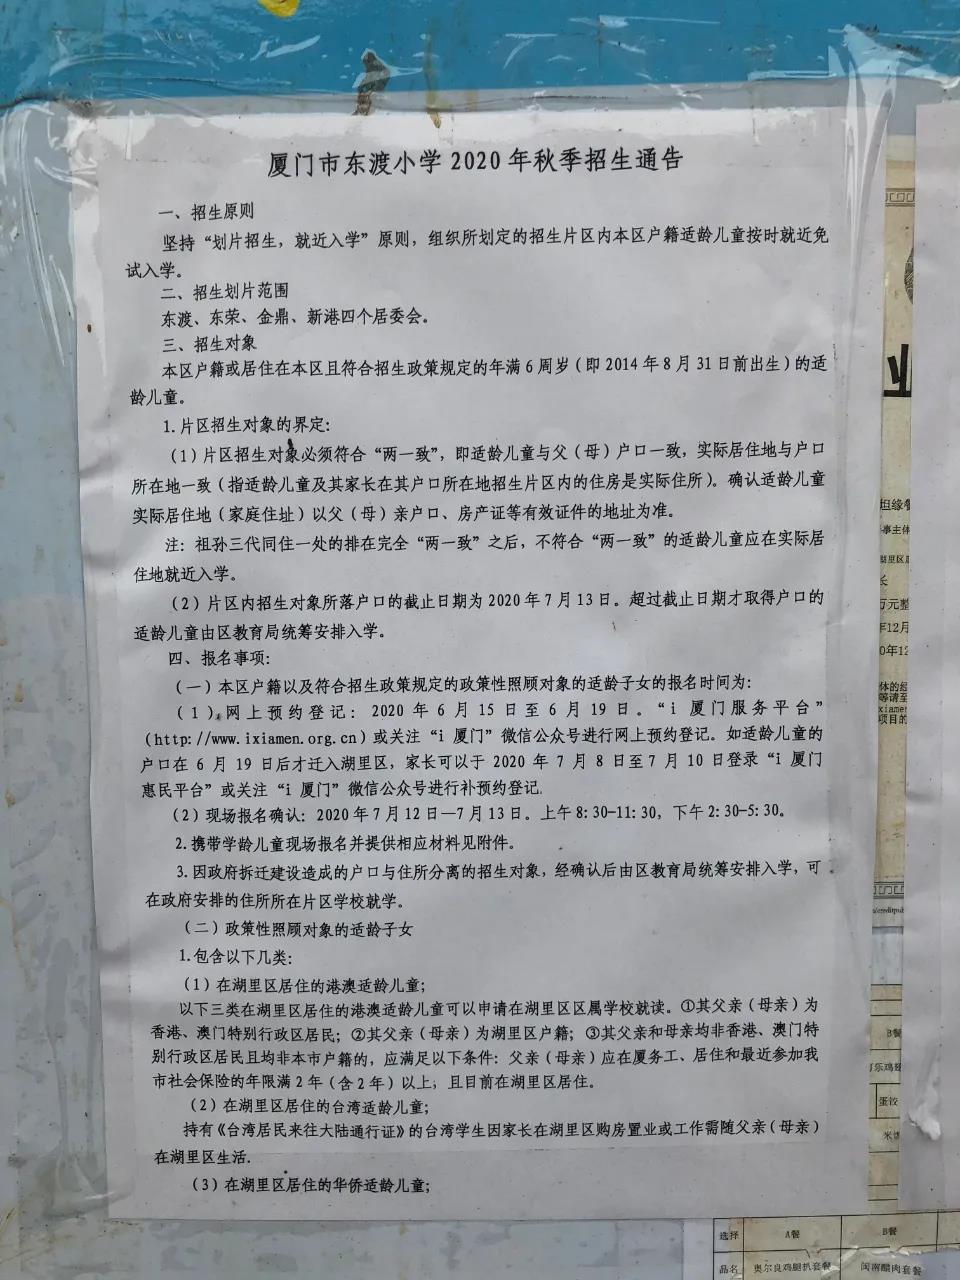 厦门市东渡小学 2020 年秋季招生通告
一、招生原则
坚持“划片招生，就近入学”原则，组织所划定的招生片区内本区户籍适龄儿童按时就近免
试入学。
二、招生划片范围
东渡、东荣、金鼎、新港四个居委会。
三、招生对象
本区户籍或居住在本区且符合招生政策规定的年满 6 周岁（即 2014 年 8 月 31 日前出生）的适
龄儿童。
1.片区招生对象的界定：
（1）片区招生对象必须符合“两一致”，即适龄儿童与父（母）户口一致，实际居住地与户口
所在地一致（指适龄儿童及其家长在其户口所在地招生片区内的住房是实际住所）。确认适龄儿童
实际居住地（家庭住址）以父（母）亲户口、房产证等有效证件的地址为准。
注：祖孙三代同住一处的排在完全“两一致”之后，不符合“两一致”的适龄儿童应在实际居
住地就近入学。
（2）片区内招生对象所落户口的截止日期为 2020 年 7 月 13 日。超过截止日期才取得户口的
适龄儿童由区教育局统筹安排入学。
四、报名事项：
（一）本区户籍以及符合招生政策规定的政策性照顾对象的适龄子女的报名时间为：
（1）网上预约登记：2020 年 6 月 15 日至 6 月 19 日。“i 厦门服务平台”
（http://www.ixiamen.org.cn）或关注“i 厦门”微信公众号进行网上预约登记。如适龄儿童的
户口在 6 月 19 日后才迁入湖里区，家长可以于 2020 年 7 月 8 日至 7 月 10 日登录“i 厦门
惠民平台”或关注“i 厦门”微信公众号进行补预约登记.
（2）现场报名确认：2020 年 7 月 12 日—7 月 13 日。上午 8:30-11:30，下午 2:30-5:30。
2.携带学龄儿童现场报名并提供相应材料见附件。
3.因政府拆迁建设造成的户口与住所分离的招生对象，经确认后由区教育局统筹安排入学，可
在政府安排的住所所在片区学校就学。
（二）政策性照顾对象的适龄子女
1.包含以下几类：
（1）在湖里区居住的港澳适龄儿童；
以下三类在湖里区居住的港澳适龄儿童可以申请在湖里区区属学校就读。①其父亲（母亲）为
香港、澳门特别行政区居民；②其父亲（母亲）为湖里区户籍；③其父亲和母亲均非香港、澳门特
别行政区居民且均非本市户籍的，应满足以下条件：父亲（母亲）应在厦务工、居住和最近参加我
市社会保险的年限满 2 年（含 2 年）以上，且目前在湖里区居住。
（2）在湖里区居住的台湾适龄儿童；
持有《台湾居民来往大陆通行证》的台湾学生因家长在湖里区购房置业或工作需随父亲（母亲）
在湖里区生活.
（3）在湖里区居住的华侨适龄儿童；
业
事主体
长
万元整
年12月
B餐
蛋饺
选择 A餐 B餐
品名 奥尔良鸡腿扒套餐 闽南醋肉套餐